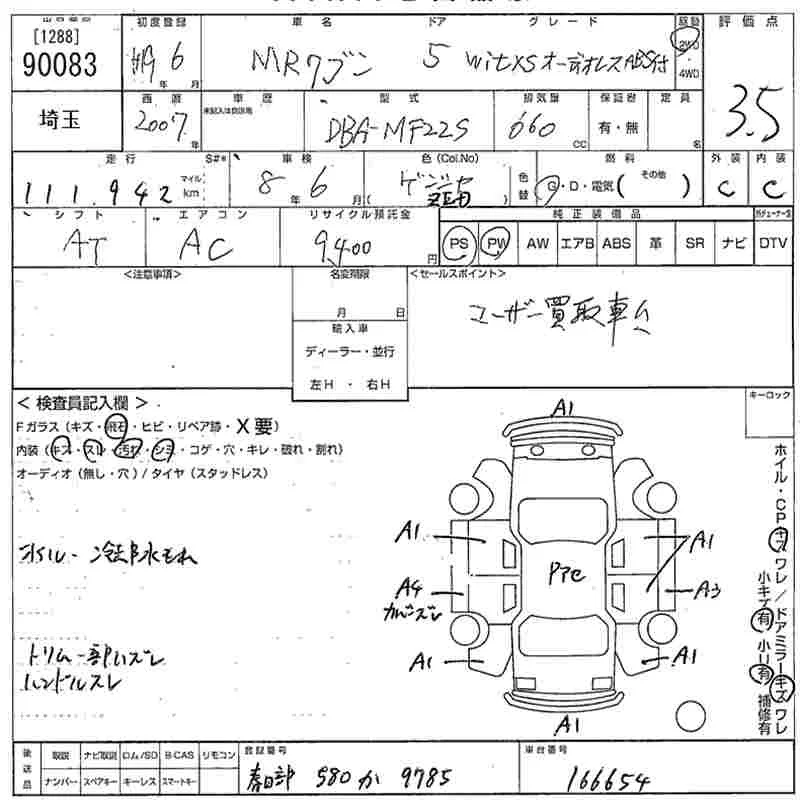 [1288]
90083
初度登録 車名 ドア グレード 駆動 評価点
H19年 6月 MRワゴン 5 Wit XS オーディオレス ABS付 2WD・4WD 3.5
埼玉
西暦 車歴 型式 排気量 保証書 定員
2007年 未記入は自家用 DBA-MF22S 660 CC 有・無 名
走行 S#* 車検 色 (Col.No) 色替 燃料 外装 内装
111,942 マイル km 8年 6月 ( ) G・D・電気( その他 ) C C
シフト エアコン リサイクル預託金 純正装備品
AT AC 9,400円 PS PW AW エアB ABS 革 SR ナビ DTV
<注意事項> 名変期限 <セールスポイント>
月 日
ユーザー買取車
輸入車
ディーラー・並行
左H ・ 右H
<検査員記入欄> キーロック
Fガラス (キズ・飛石・ヒビ・リペア跡・X要)
内装 (キズ・スレ・汚れ・シミ・コゲ・穴・キレ・破れ・割れ)
オーディオ (無し・穴) / タイヤ (スタッドレス)
オイル・冷却水もれ
トリム一部ハズレ
ハンドルスレ
A1
A1 A1
Pテc
A4 A3
カバーズレ
A1 A1
A1
ホイル・CPキズワレ/ドアミラーキズワレ
小キズ有 小リ有 補修有
後送品 取説 ナビ取説 ロム/SD B-CAS リモコン 登録番号 車台番号
ナンバー スペアキー キーレス スマートキー 春日部 580 か 9785 166654